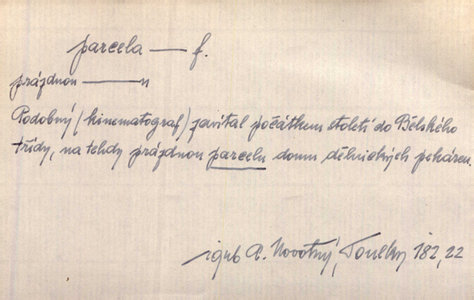 parcela — f.
prázdnou — n
Podobný (kinematograf) zavítal počátkem století do Bělského
třídy, na tehdy prázdnou parcelu domu dělnických pekáren.
A. Novotný, Toulky 182, 22